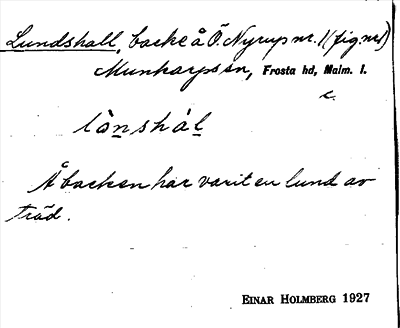 Lundshall, backe å Ö. Nyrup nr. 1 (fig. nr 1)
Munkarps sn, Frosta hd, Malm. l.
lànshál
Å backen har varit en lund av
träd.
EINAR HOLMBERG 1927